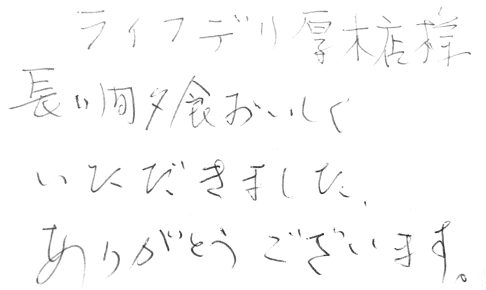 ライフデリ厚木店様
長い間夕食おいしく
いただきました、
ありがとうございます。